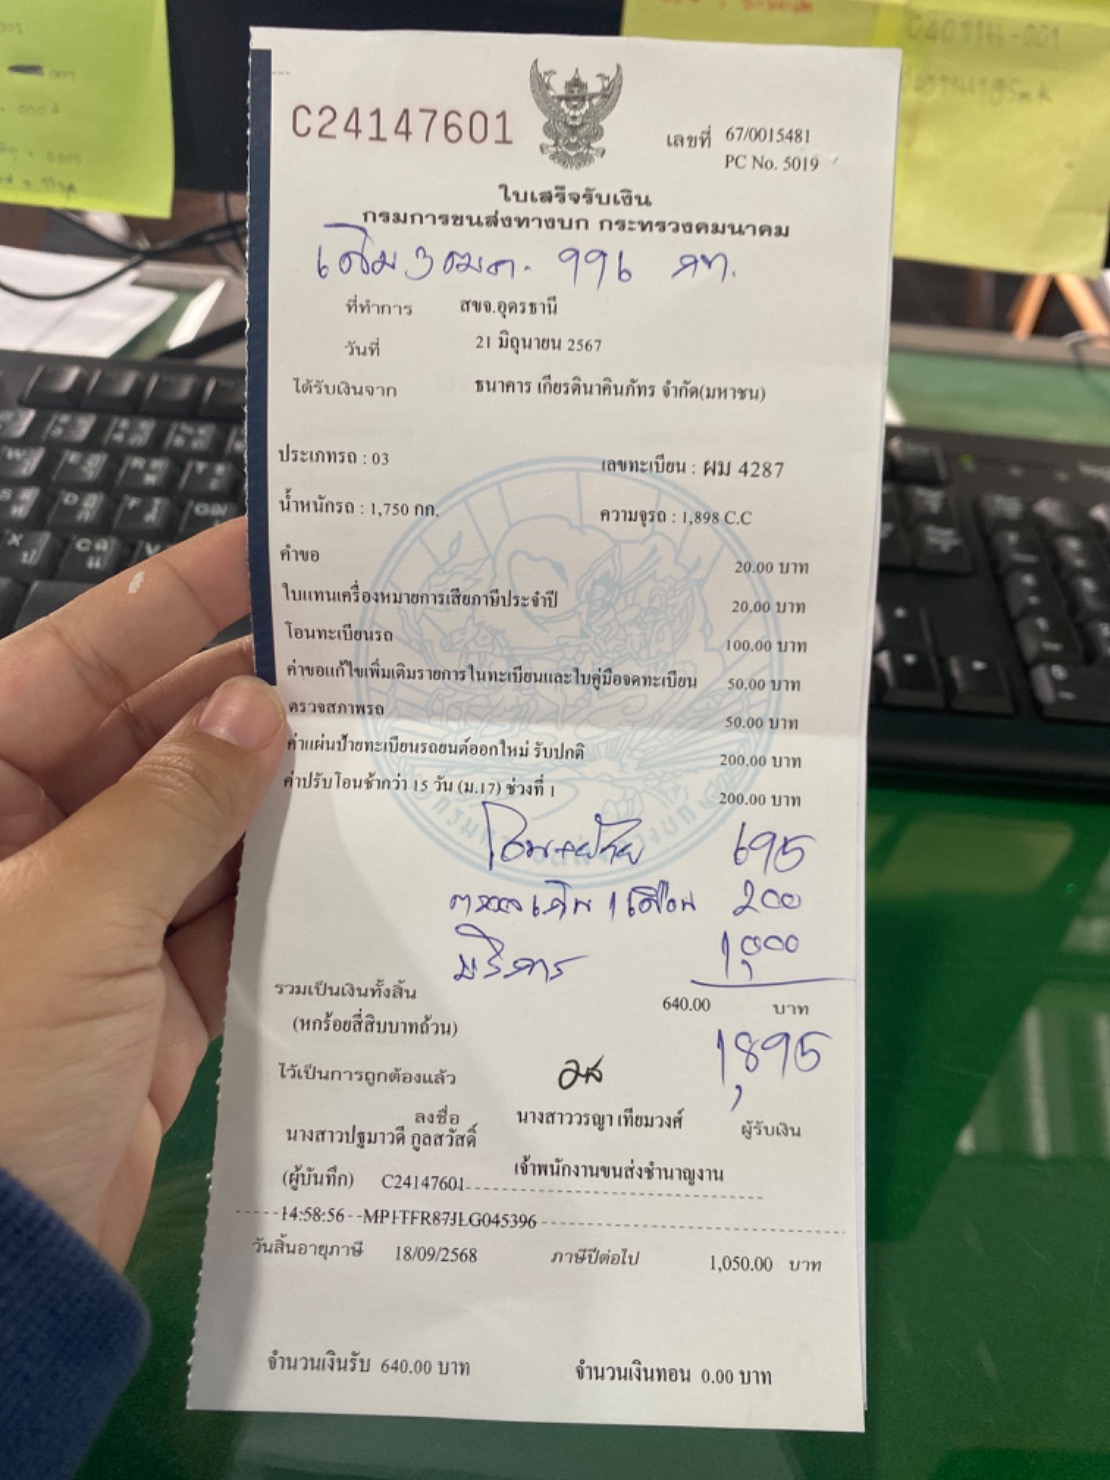 C24147601
เลขที่ 67/0015481
PC No. 5019
ใบเสร็จรับเงิน
กรมการขนส่งทางบก กระทรวงคมนาคม
เดิม 996
ที่ทำการ สขจ.อุดรธานี
วันที่ 21 มิถุนายน 2567
ได้รับเงินจาก ธนาคาร เกียรตินาคินภัทร จำกัด(มหาชน)
ประเภทรถ : 03 เลขทะเบียน : ผม 4287
น้ำหนักรถ : 1,750 กก. ความจุรถ : 1,898 C.C
คำขอ 20.00 บาท
ใบแทนเครื่องหมายการเสียภาษีประจำปี 20.00 บาท
โอนทะเบียนรถ 100.00 บาท
ค่าขอแก้ไขเพิ่มเติมรายการในทะเบียนและใบคู่มือจดทะเบียน 50.00 บาท
ตรวจสภาพรถ 50.00 บาท
ค่าแผ่นป้ายทะเบียนรถยนต์ออกใหม่ รับปกติ 200.00 บาท
ค่าปรับโอนช้ากว่า 15 วัน (ม.17) ช่วงที่ 1 200.00 บาท
โอน+ย้าย 695
ตรวจเกิน 1 เดือน 200
บริการ 1,000
รวมเป็นเงินทั้งสิ้น 640.00 บาท
(หกร้อยสี่สิบบาทถ้วน)
1,895
ไว้เป็นการถูกต้องแล้ว
ลงชื่อ นางสาววรญา เทียมวงศ์ ผู้รับเงิน
นางสาวปฐมาวดี กูลสวัสดิ์
(ผู้บันทึก) C24147601 เจ้าพนักงานขนส่งชำนาญงาน
14:58:56 MP1TFR87JLG045396
วันสิ้นอายุภาษี 18/09/2568 ภาษีปีต่อไป 1,050.00 บาท
จำนวนเงินรับ 640.00 บาท จำนวนเงินทอน 0.00 บาท